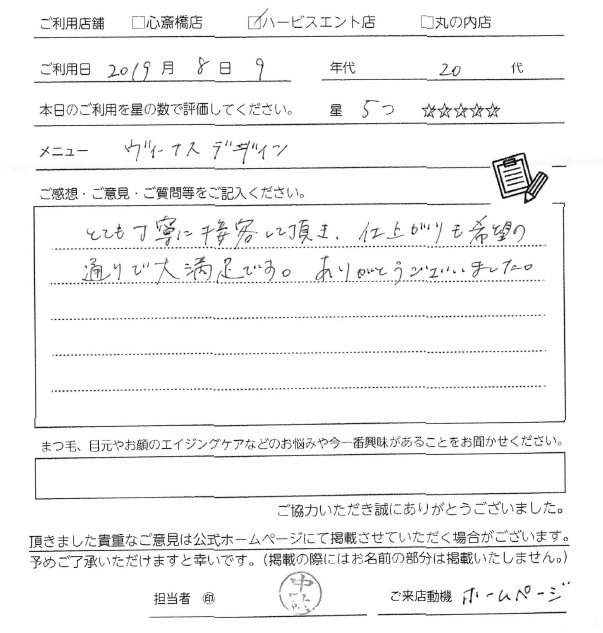 ご利用店舗 □心斎橋店 ☑ハービスエント店 □丸の内店
ご利用日 2019 月 8 日 9 年代 20 代
本日のご利用を星の数で評価してください。 星 5つ ☆☆☆☆☆
メニュー ヴィーナスデザイン
ご感想・ご意見・ご質問等をご記入ください。
とても丁寧に接客して頂き、仕上がりも希望の
通りで大満足です。ありがとうございました。
まつ毛、目元やお顔のエイジングケアなどのお悩みや今一番興味があることをお聞かせください。
ご協力いただき誠にありがとうございました。
頂きました貴重なご意見は公式ホームページにて掲載させていただく場合がございます。
予めご了承いただけますと幸いです。(掲載の際にはお名前の部分は掲載いたしません。)
担当者 ㊞ 中 ご来店動機 ホームページ